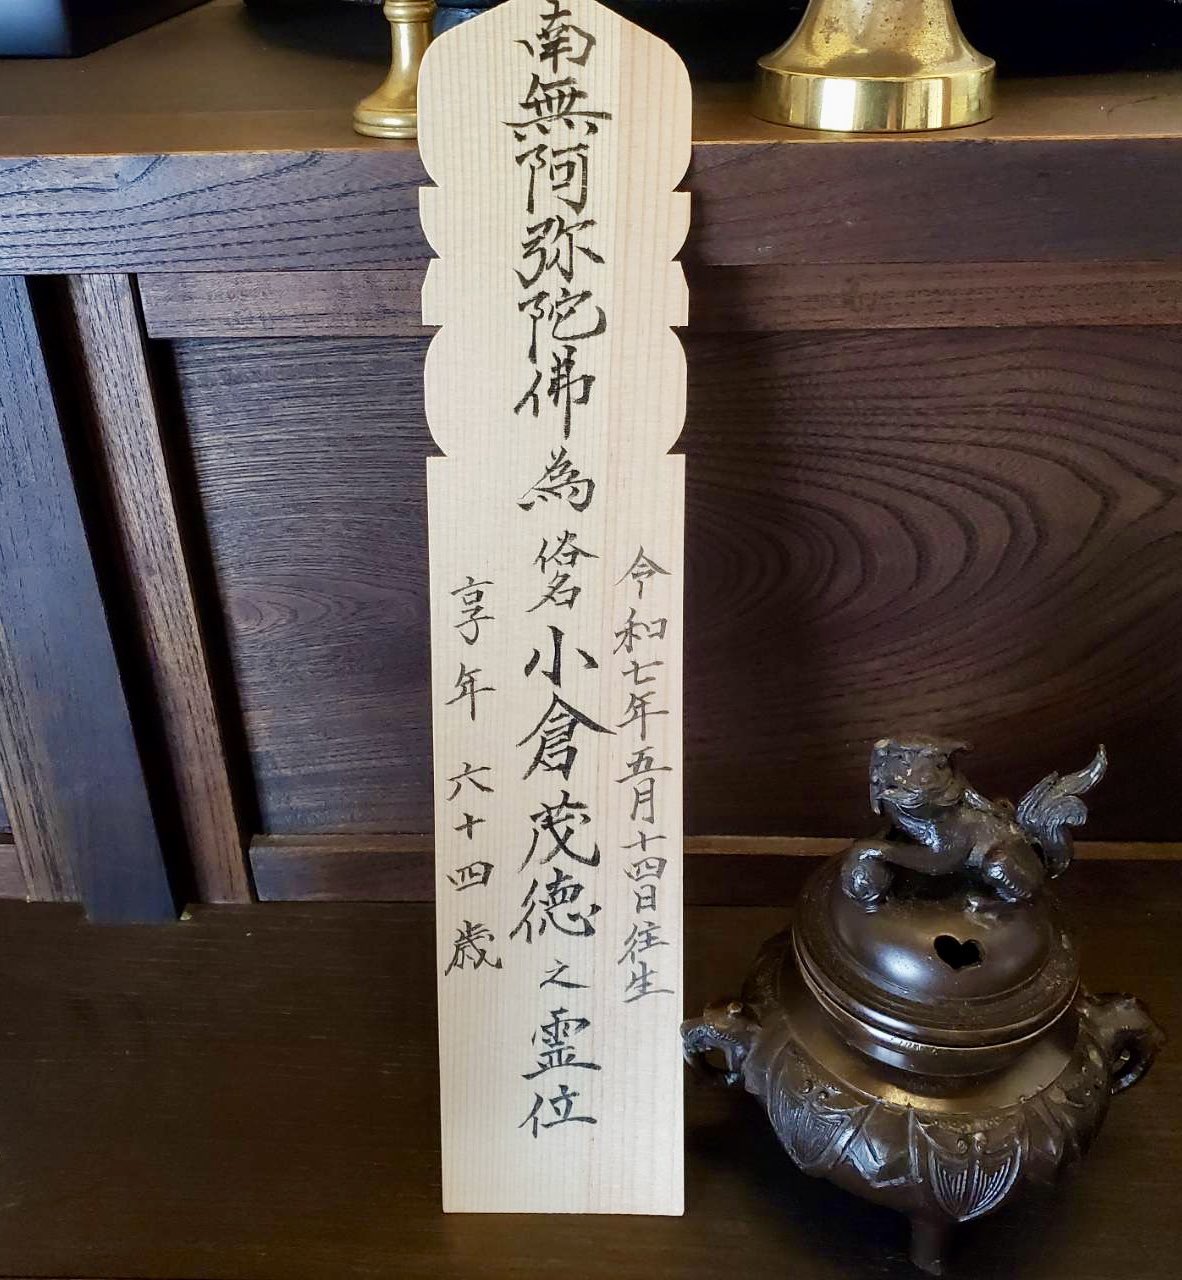 令和七年五月十四日往生
南無阿弥陀佛為俗名小倉茂德之霊位
享年六十四歳